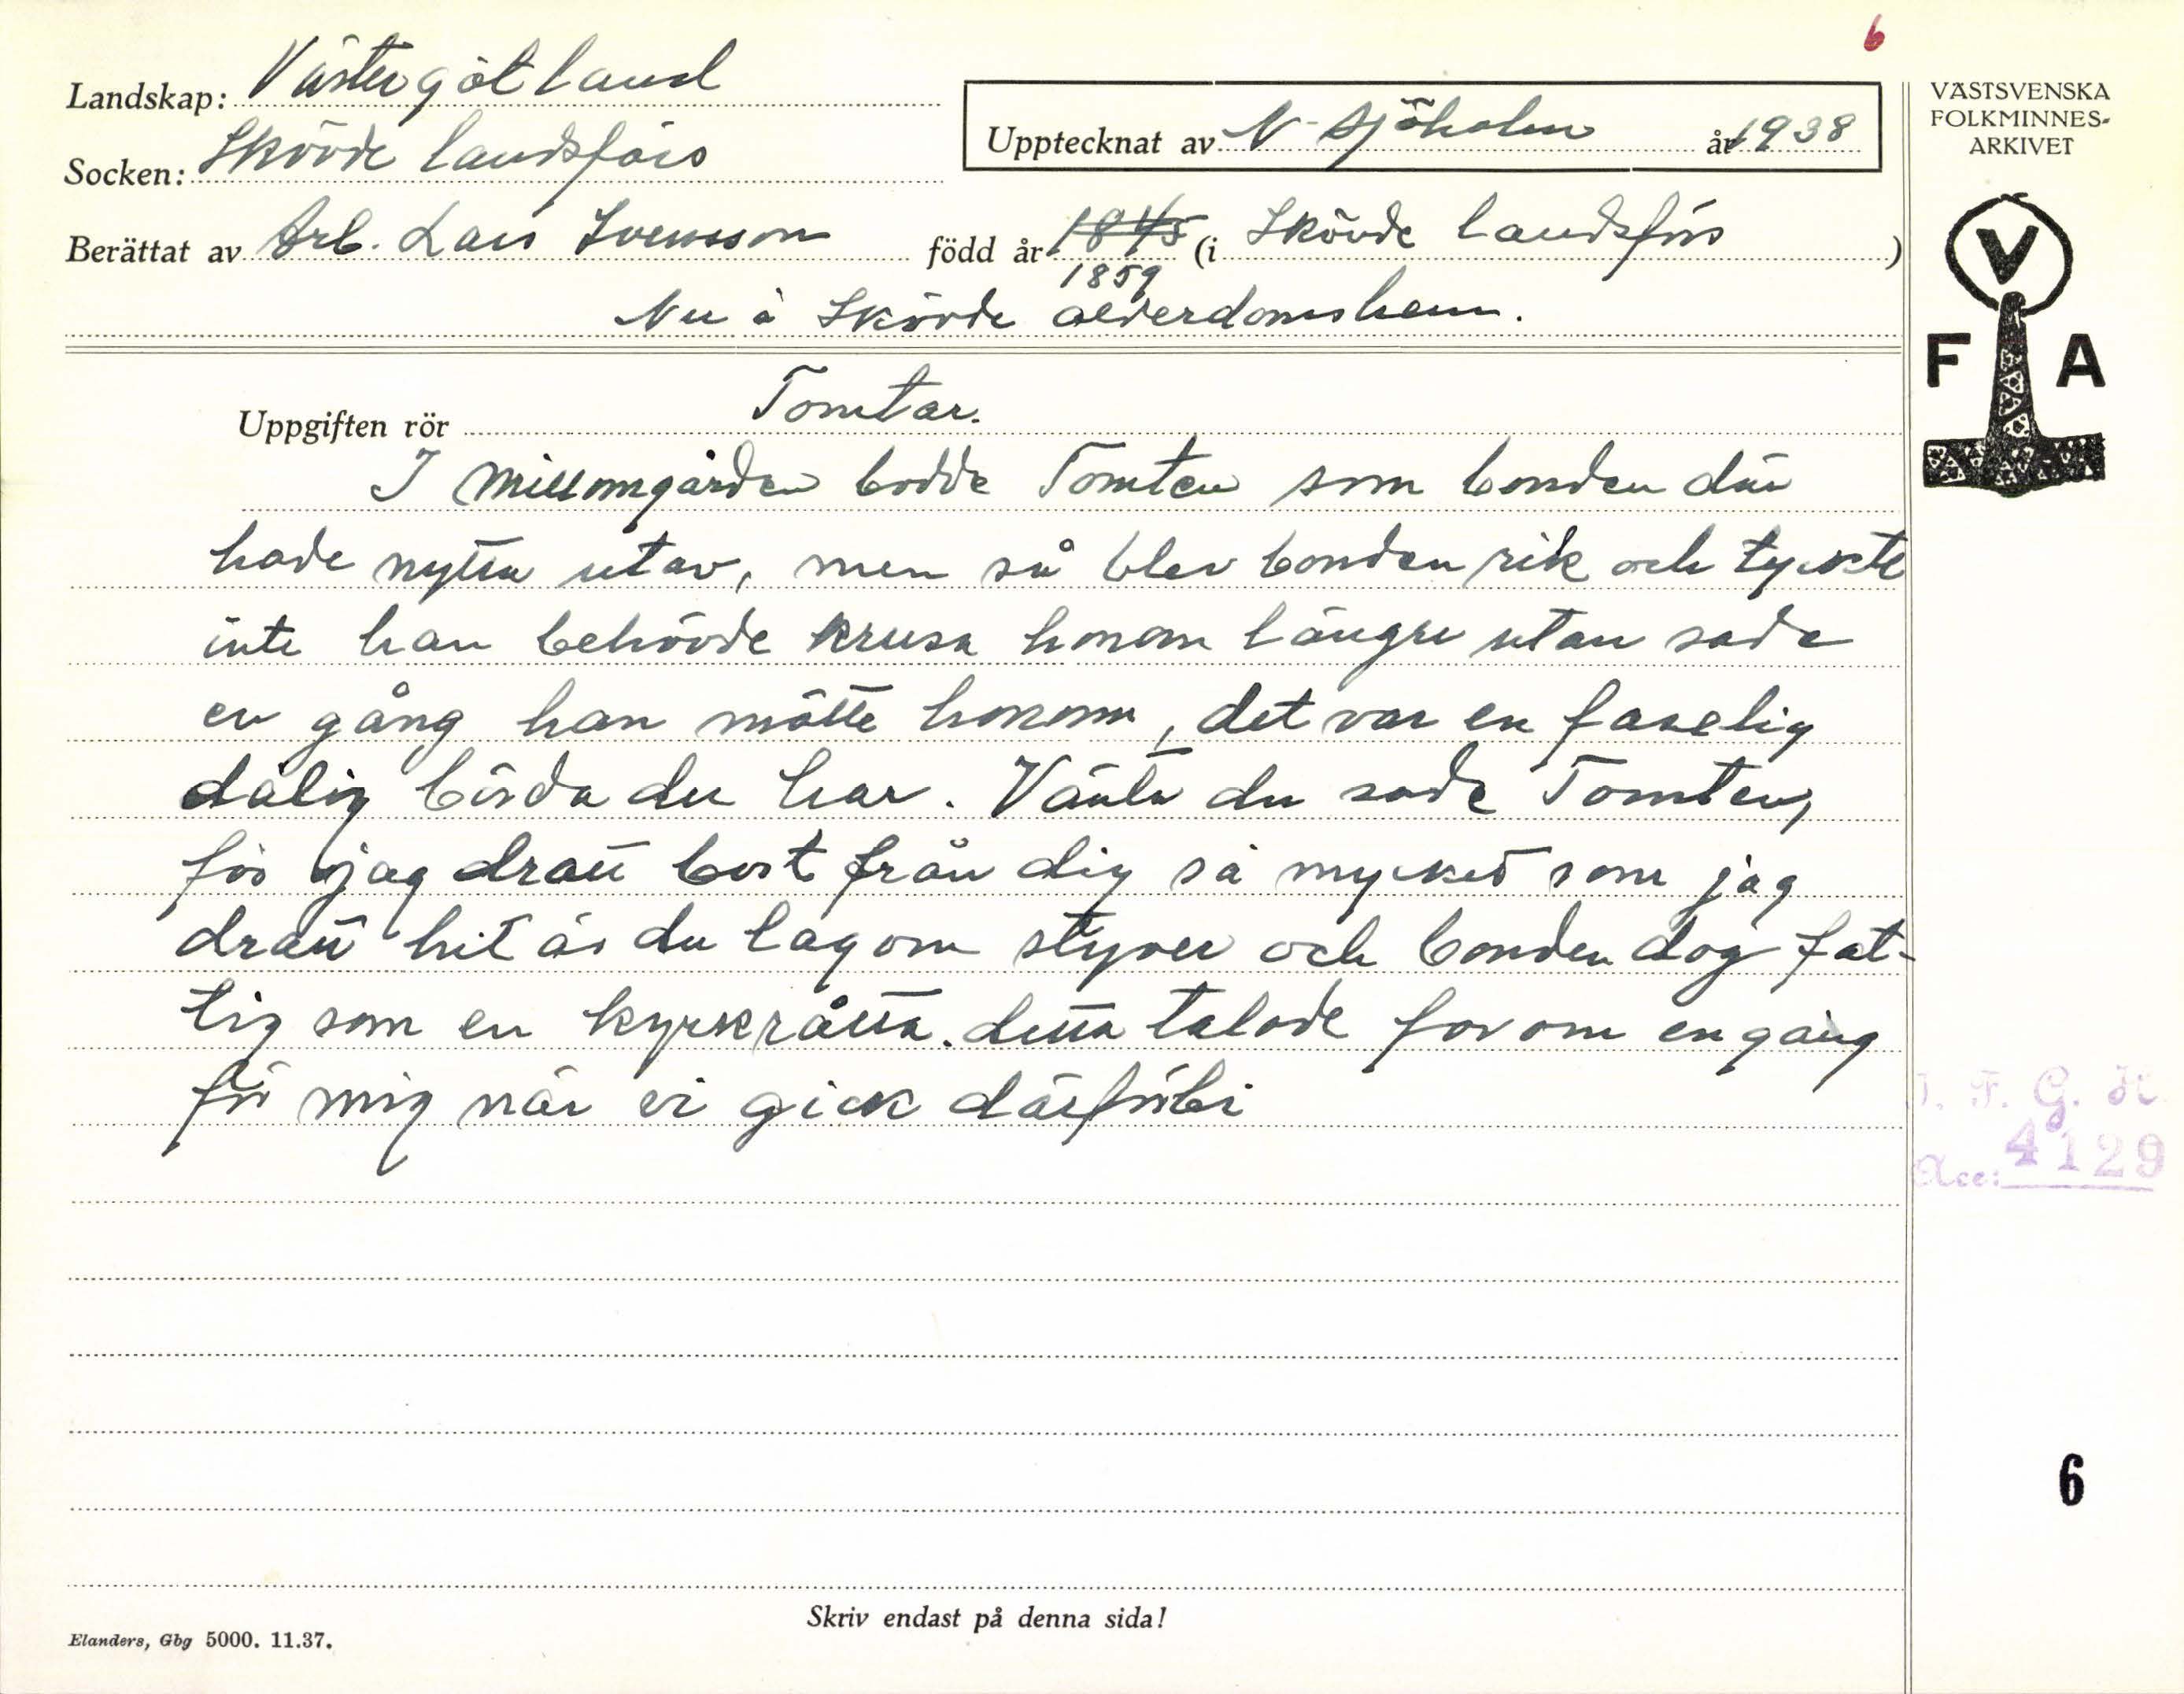 6
Landskap: Västergötland
Socken: Skövde landsförs
Upptecknat av N Sjöholm år 1938
Berättat av Arb. Lars Svensson född år 1845 (i Skövde landsförs )
1859
Nu å Skövde ålderdomshem.
Uppgiften rör Tomtar.
I Millomgården bodde Tomten som bonden där
hade nytta utav, men så blev bonden rik och tyckte
inte han behövde krusa honom längre utan sade
en gång han mötte honom, det var en faselig
dålig börda du har. Vänta du sade Tomten,
för jag dratt bort från dig så mycket som jag
dratt hit är du lagom styver och bonden dog fat-
tig som en kyrkråtta. detta talade far om en gång
för mig när vi gick därförbi
Skriv endast på denna sida!
Elanders, Gbg 5000. 11.37.
VÄSTSVENSKA
FOLKMINNES-
ARKIVET
V
F A
I. F. G. H.
Acc: 4129
6